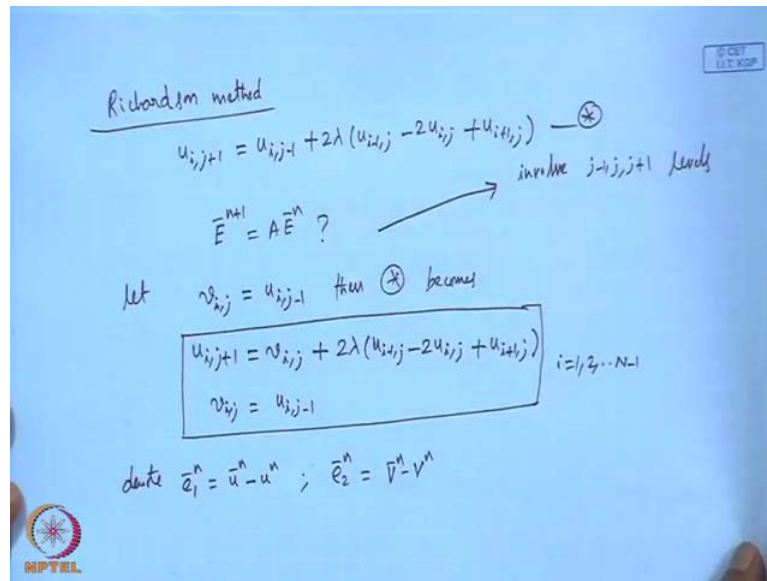 © CET
I.I.T. KGP
Richardson method
u_{i,j+1} = u_{i,j-1} + 2λ(u_{i-1,j} - 2u_{i,j} + u_{i+1,j}) — ⊛
involve j-1, j, j+1 levels
Ē^{n+1} = A Ē^n ?
let v_{i,j} = u_{i,j-1} then ⊛ becomes
u_{i,j+1} = v_{i,j} + 2λ(u_{i-1,j} - 2u_{i,j} + u_{i+1,j})
i=1,2,..N-1
v_{i,j} = u_{i,j-1}
denote ē_1^n = ū^n - u^n ; ē_2^n = v̄^n - v^n
NPTEL